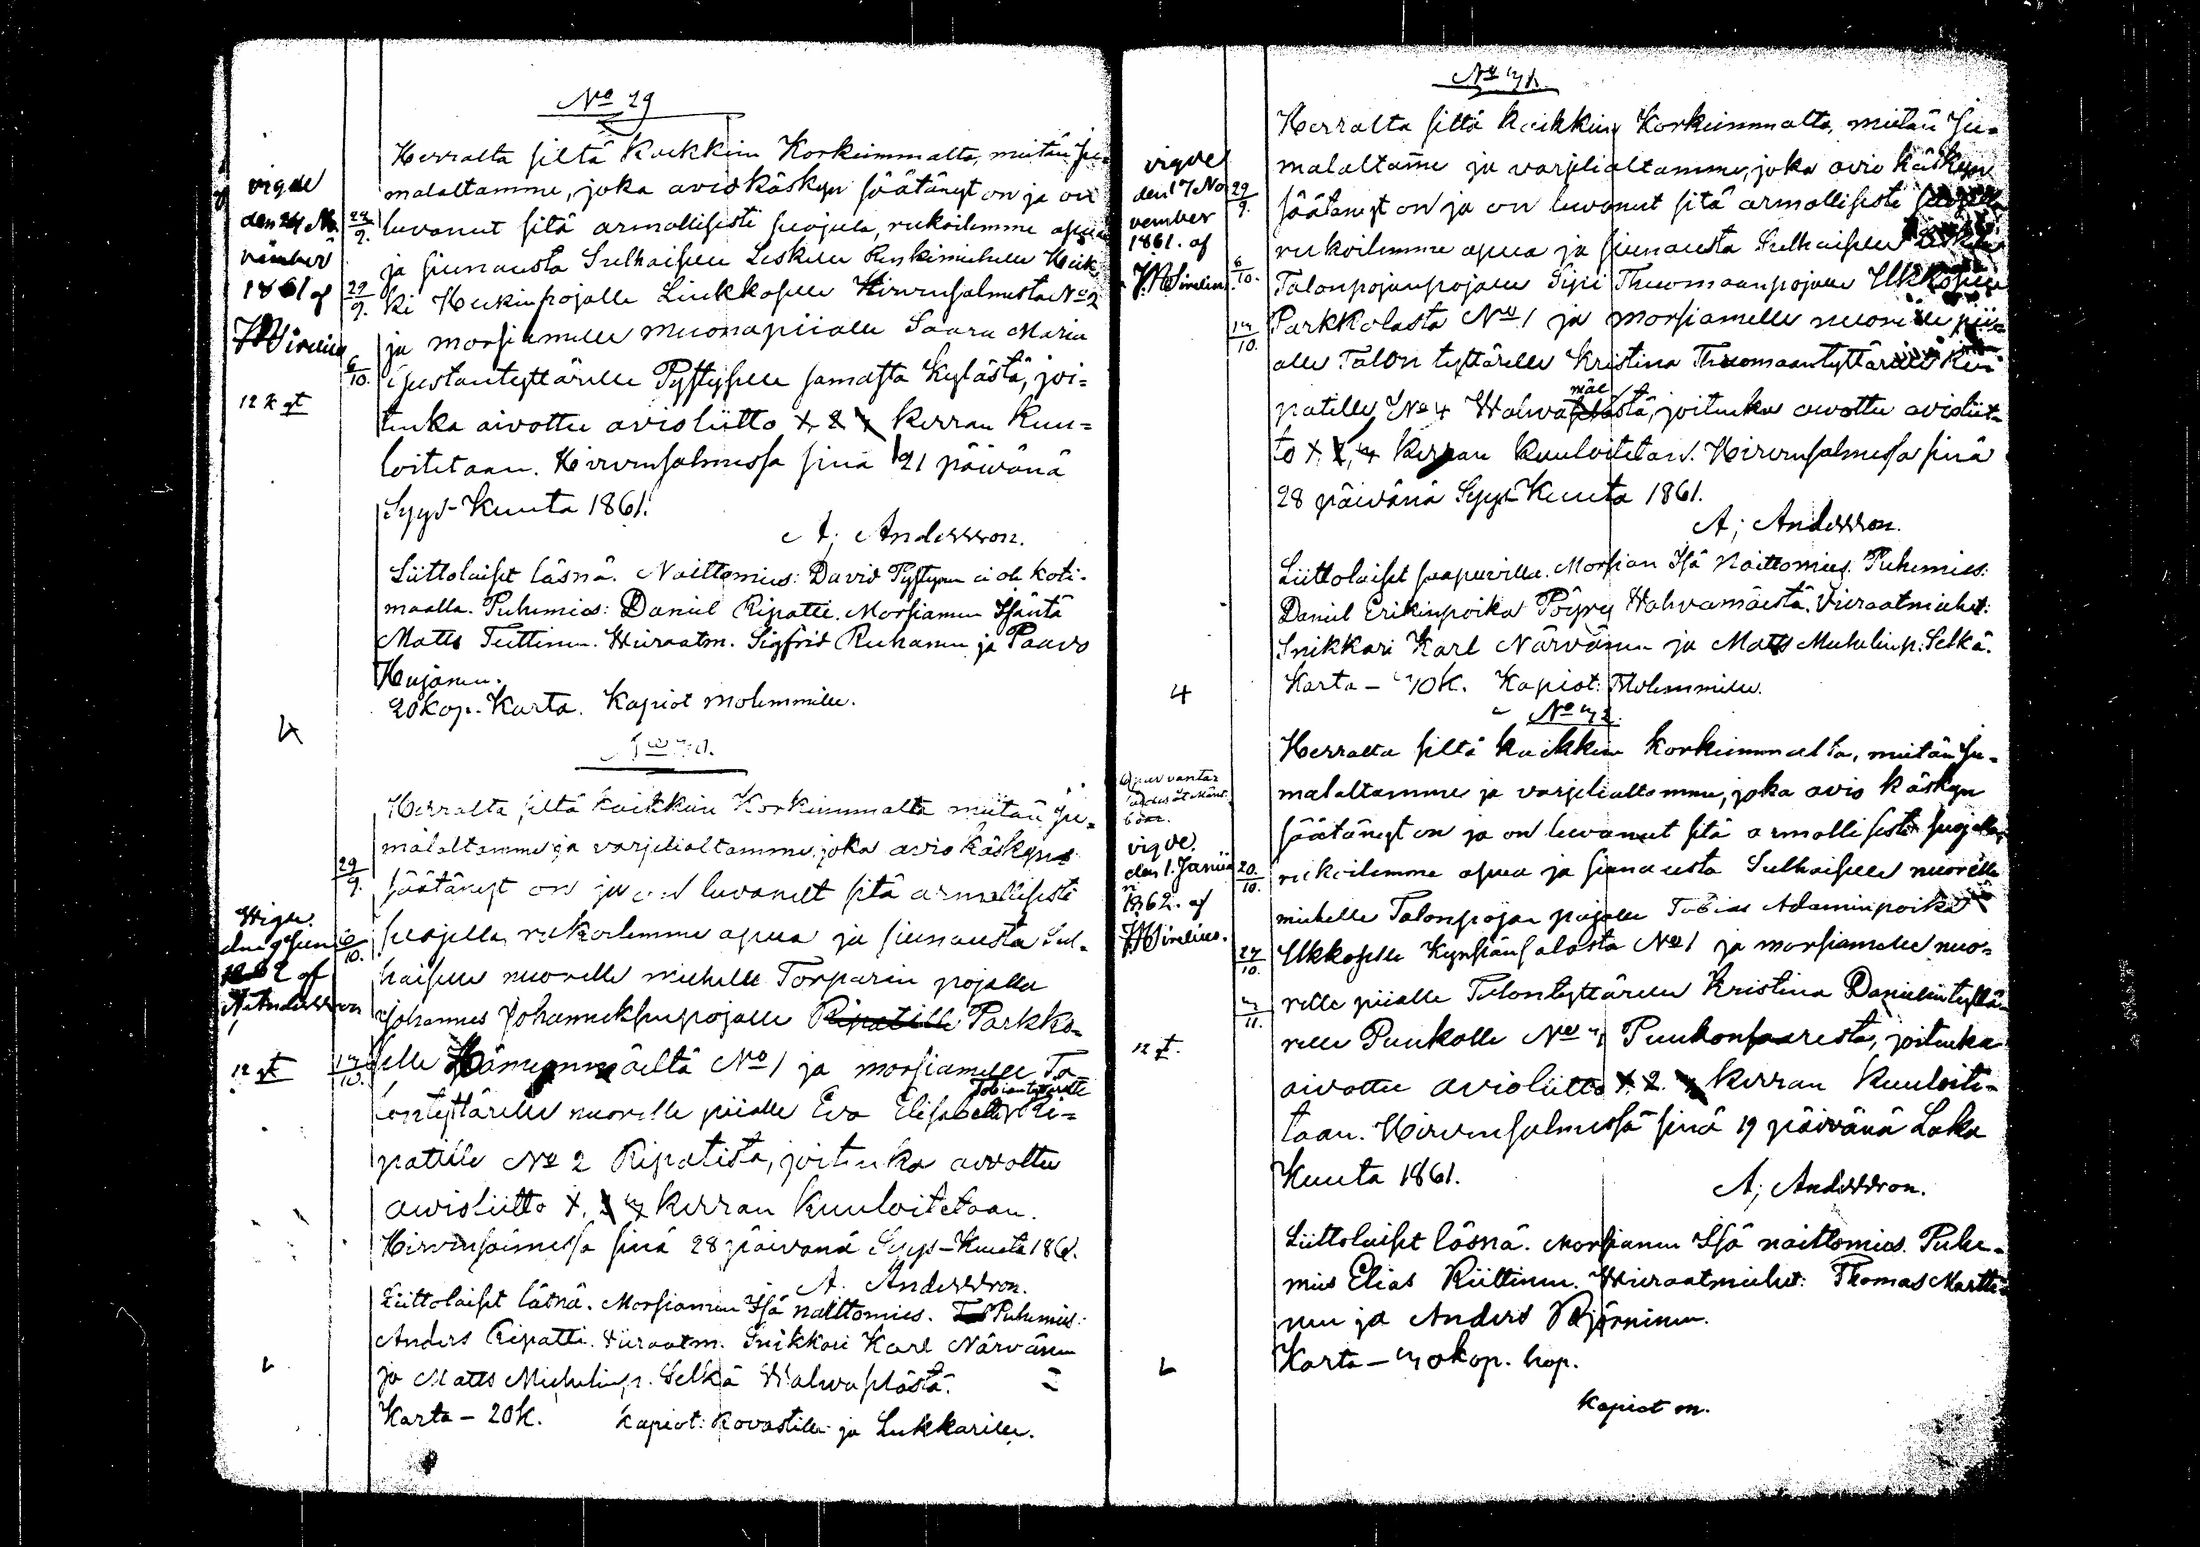 No 29
Herralta siltä Kaikkein Korkeimmalta, meitän Ju-
malaltamme, joka aviokäskyn säätänyt on ja on
luvanut sitä armollisesti suojela, rukoilemme apua
ja siunausta Sulhaiselle Leskelle Renkimiehelle Heik
ki Heikinpojalle Liukkoselle Hirvensalmesta No 2
ja morsiamelle muonapiialle Saara Maria
Gustantyttärelle Pystyselle samasta Kylästä, joi-
tenka aivottu avioliitto kerran Kuu-
loitetaan. Hirvensalmessa sinä 21 päivänä
Syys-Kuuta 1861.
A; Andersson.
Liittolaiset läsnä. Naittomies: David Pystynen ei ole koti-
maalla. Puhemies: Daniel Ripatti. Morsiamen Isäntä
Matts Teittinen. Wieraatm. Sigfrid Ruhanen ja Paavo
Kujanen.
20 kop. Karta. Kapiot molemmille.
vigde
den 24 No
vember
1861 af
JWirelius
12 k qt
22/9.
29/9.
6/10.
4
No 30.
Herralta, siltä kaikkein Korkeimmalta meitän Ju-
malaltamme ja varjelialtamme, joka avio käskyn
säätänyt on ja on luvanut sitä armollisesti
suojella, rukoilemme apua ja siunausta Sul-
haiselle nuorelle miehelle Torparin pojalle
Johannes Johanneksenpojalle Ripatille Parkko-
selle Hämeenmäeltä No 1 ja morsiamelle Ta-
Tobiantyttärelle
lontyttärelle nuorelle piialle Eva Elisabeth Ri-
patille No 2 Ripatista, joitenka aivottu
avioliitto kerran Kuuloitetaan.
Hirvensalmessa sinä 28 päivänä Syys-Kuuta 1861.
A. Andersson.
Liittolaiset läsnä. Morsiamen Isä naittomies. Puhemies:
Anders Ripatti. Vieraatm. Snikkari Karl Närvänen
ja Matts Michelinp. Selkä
Karta - 20 K. Kapiot: Rovastille ja Lukkarille.
29/9.
6/10.
Vigde.
1862 af
A; Andersson
12 qt
13/10.
No 31.
Herralta siltä kaikkein Korkeimmalta, meitän Ju-
malaltamme ja varjelialtamme, joka avio käskyn
säätänyt on ja on luvanut sitä armollisesti suojella
rukoilemme apua ja siunausta Sulhaiselle
Talonpojanpojalle Sipi Thuomaanpojalle Ukkoselle
Parkkolasta No 1 ja morsiamelle nuorelle pii-
alle Talon tyttärelle Kristina Thuomaantyttärelle Ri-
mäe
patille No 4 Wahvaselästä, joitenka aivottu avioliit-
to kerran Kuuloitetaan. Hirvensalmessa sinä
28 päivänä Syys-Kuuta 1861.
A; Andersson.
Liittolaiset saapuvilla. Morsian Isä Naittomies. Puhemies:
Daniel Erikinpoika Pöyry Wahvamäestä. Vieraatmiehet:
Snikkari Karl Närvänen ja Matts Michelinp: Selkä.
Karta - 30 K. Kapiot: Molemmille.
vigde
den 17 No
vember
1861. af
JWirelius
29/9.
6/10.
13/10.
4
No 32.
Herralta siltä kaikkein korkeimmalta, meitän Ju-
malaltamme ja varjelialtamme, joka avio käskyn
säätänyt on ja on luvanut sitä armollisesti suojella,
rukoilemme apua ja siunausta Sulhaiselle nuorelle
miehelle Talonpojan pojalle Tobias Adaminpoika
Ukkoselle Kynsiänsalosta No 1 ja morsiamelle nuo-
relle piialle Talontyttärelle Kristina Danielintyttä-
relle Puukolle No 3 Puukonsaaresta, joitenka
aivottu avioliitto kerran Kuuloite-
taan. Hirvensalmessa sinä 19 päivänä Loka
Kuuta 1861.
A; Andersson.
Liittolaiset läsnä. Morsiamen Isä naittomies. Puhe-
mies Elias Kiittinen. Wieraatmiehet: Thomas Martti-
nen ja Anders Björninen.
Karta - 30 kop. hop.
Kapiot m.
vigde.
den 1. Janua
1862. af
JWirelius.
20/10.
27/10.
3/11.
12 qt.